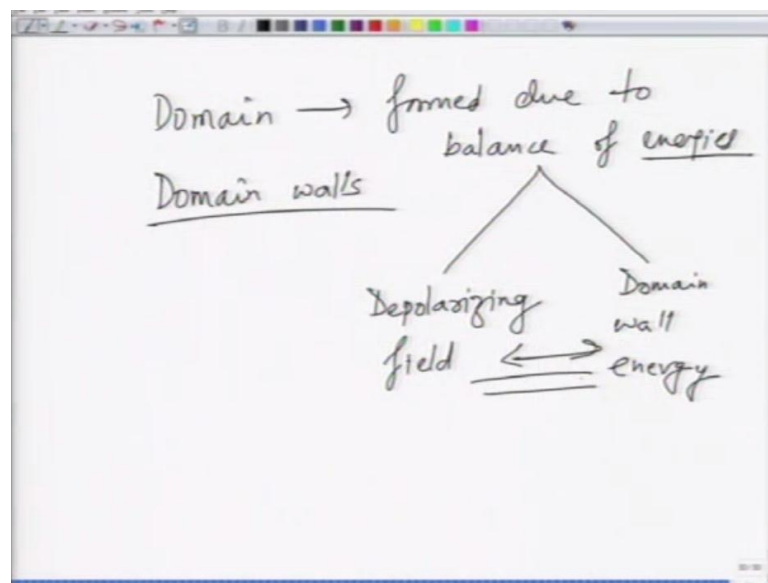 Domain → formed due to
balance of energies
Domain walls
Depolarizing
field ↔
Domain
wall
energy